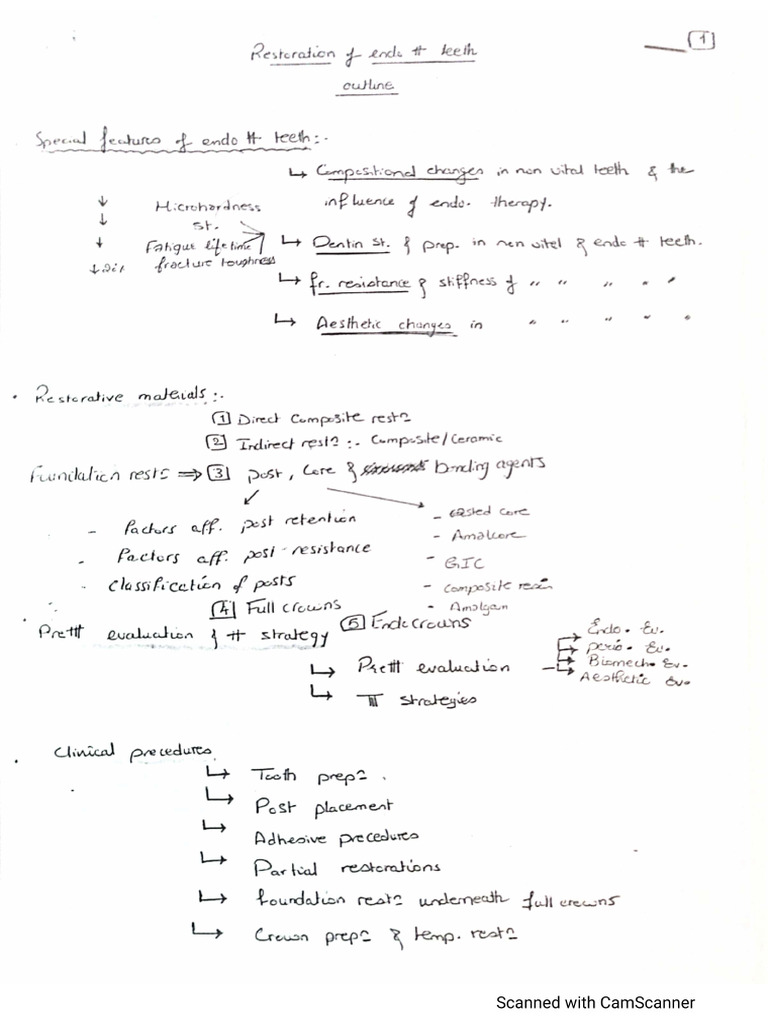 1
Restoration of endo tt teeth
outline
Special features of endo tt teeth:-
↳ Compositional changes in non vital teeth & the
influence of endo. therapy.
↓ Microhardness
↓ st.
↓ Fatigue lifetime
↓ fracture toughness
↳ Dentin st. & prep. in non vital & endo tt teeth.
↳ fr. resistance & stiffness of " " " " "
↳ Aesthetic changes in " " " " "
• Restorative materials :-
1 Direct Composite restn
2 Indirect restn :- Composite/Ceramic
Foundation restn ⇒ 3 post, Core & bonding agents
- Factors aff. post retention
- Factors aff. post-resistance
- Classification of posts
- casted core
- Amalcore
- GIC
- composite resin
- Amalgam
4 Full crowns
5 Endocrowns
• Prettt evaluation & tt strategy
↳ Prettt evaluation
→ Endo. Ev.
→ perio. Ev.
→ Biomech. Ev.
→ Aesthetic Ev.
↳ TTT strategies
• Clinical procedures
↳ Tooth prepn.
↳ Post placement
↳ Adhesive procedures
↳ Partial restorations
↳ foundation restn underneath full crowns
↳ Crown prepn & temp. restn
Scanned with CamScanner